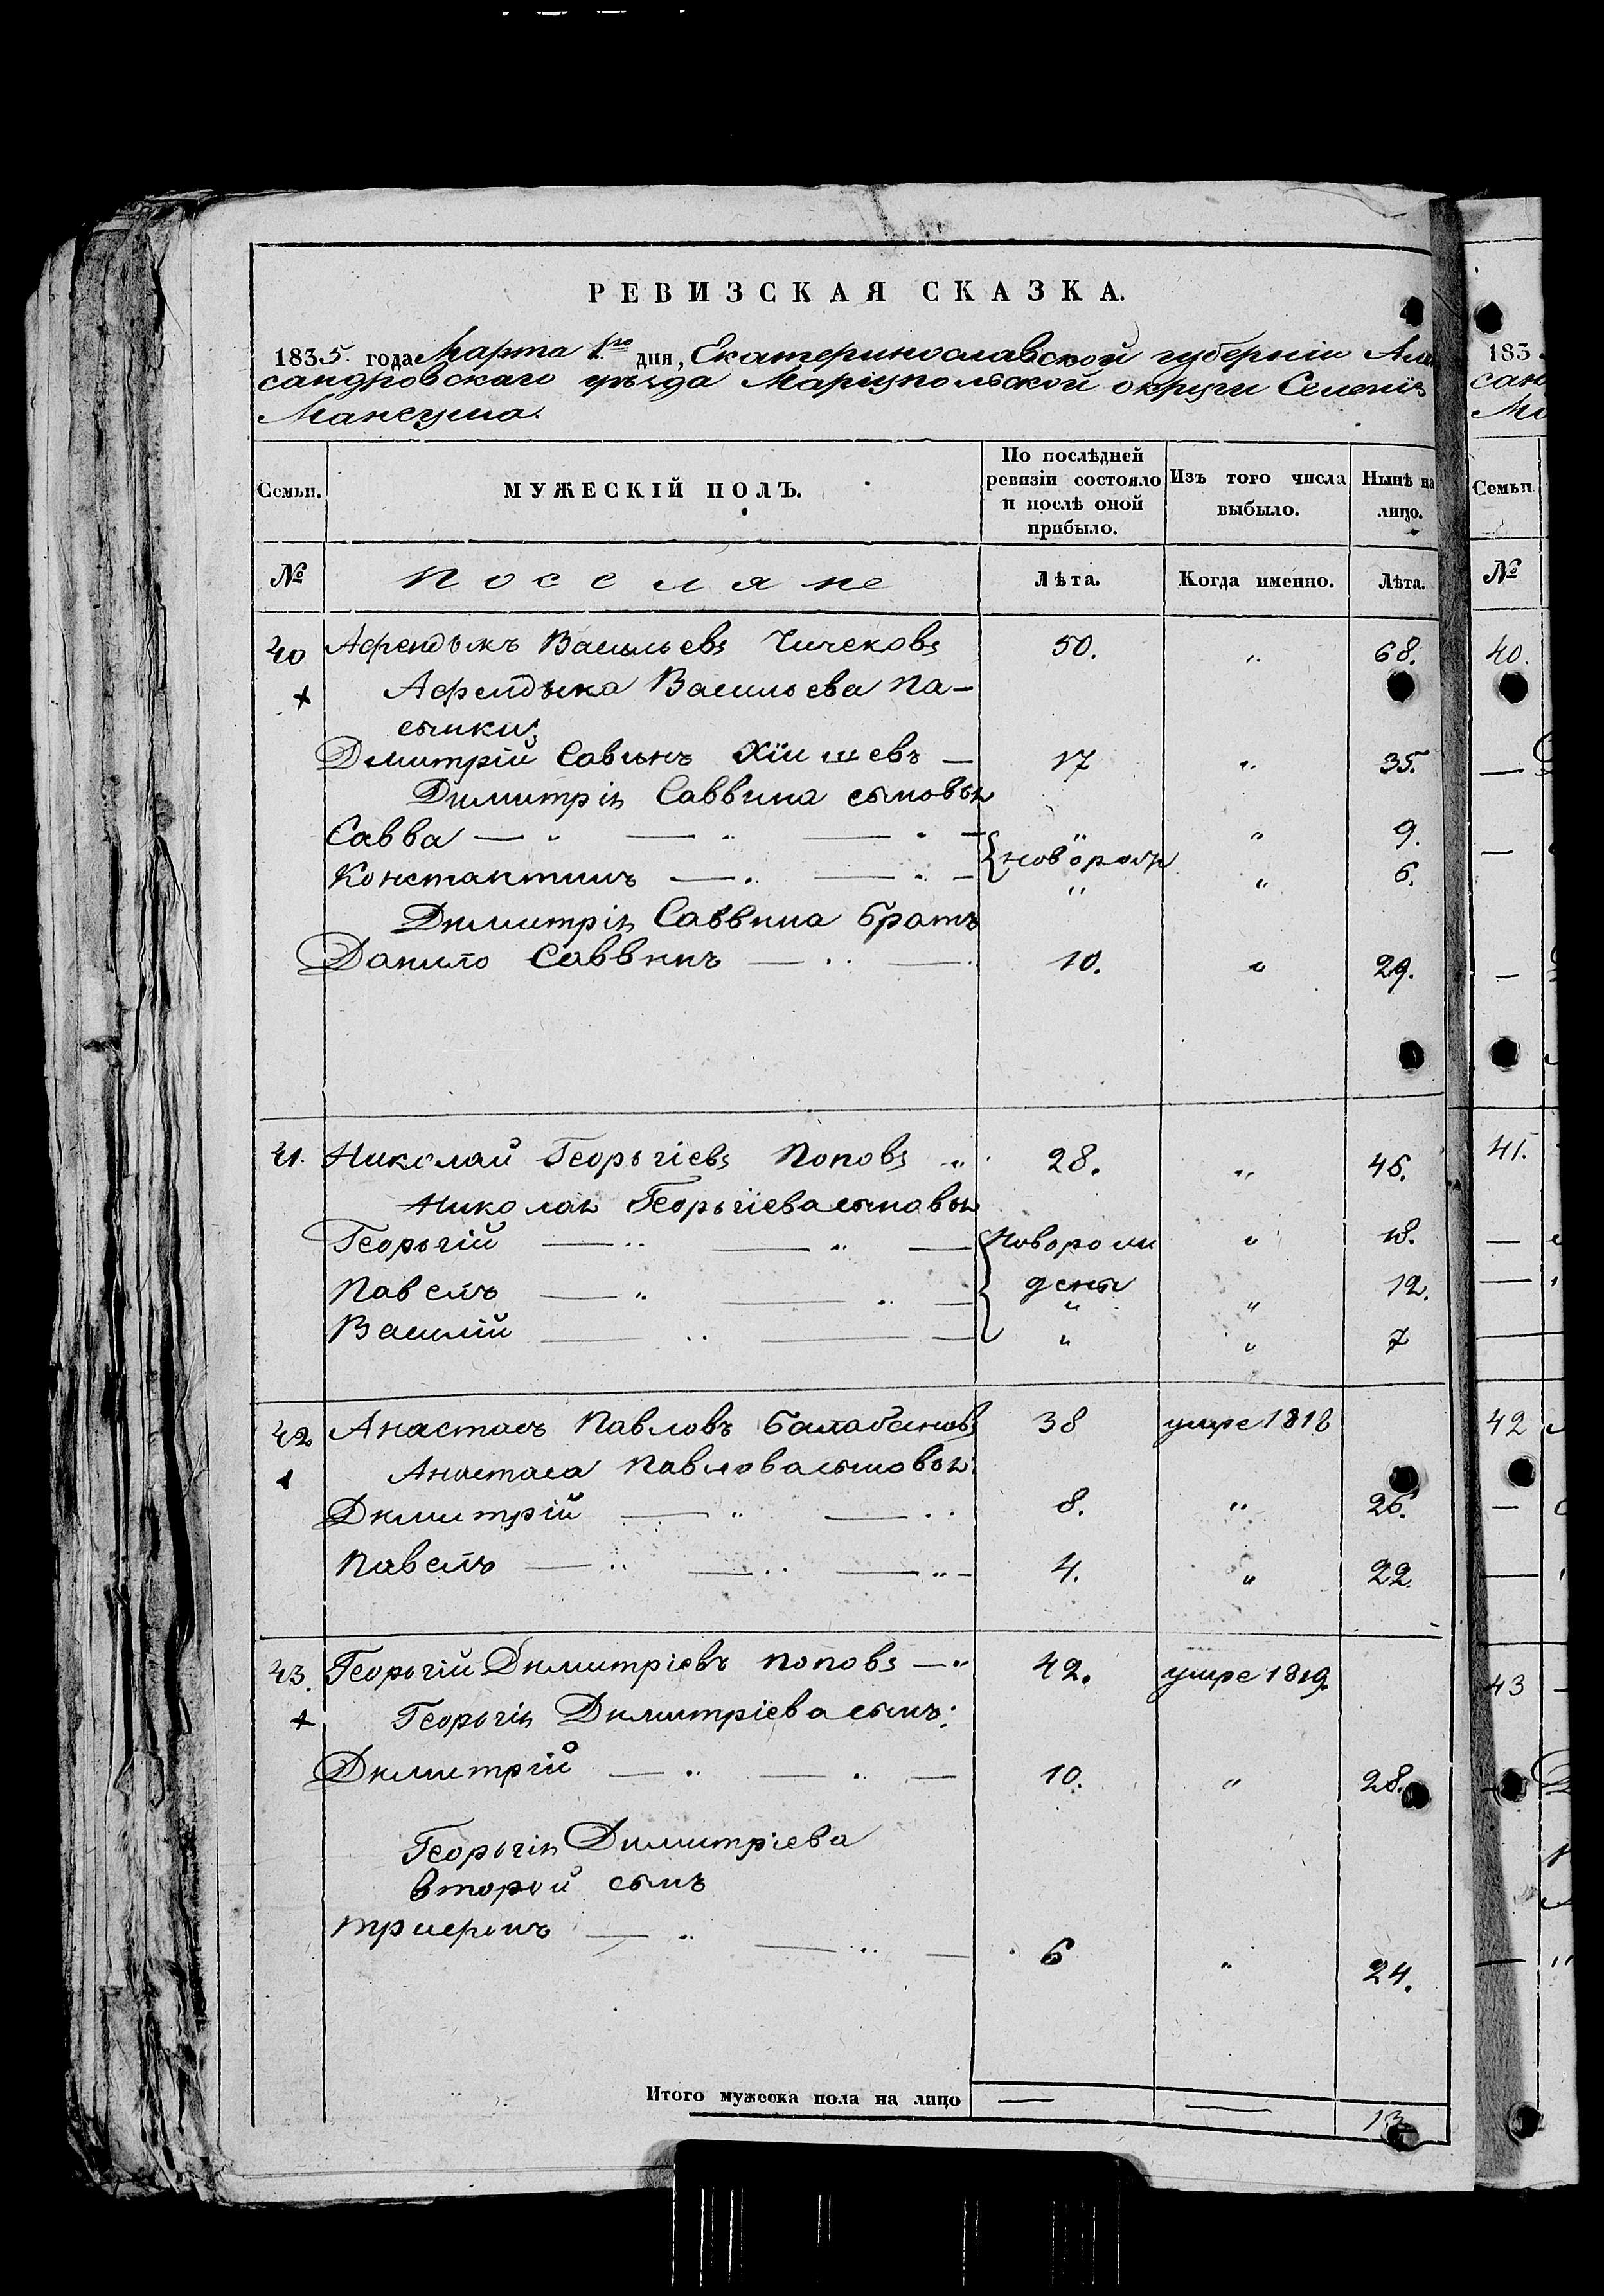 РЕВИЗСКАЯ СКАЗКА.
1835. года Марта 1го дня, Екатеринославской губерніи Алек
сандровскаго уѣзда Маріупольской округи Селенія
Мангуша.
Семьи. МУЖЕСКІЙ ПОЛЪ. По послѣдней ревизіи состояло и послѣ оной прибыло. Изъ того числа выбыло. Нынѣ на лицо.
№ Поселяне Лѣта. Когда именно. Лѣта.
40 Афендыкъ Васильевъ Чичековъ 50. „ 68.
Афендыка Васильева па-
сынки;
Дмитрій Савинъ 17 „ 35.
Димитрія Саввина сыновья
Савва — „ — „ — „ — „ 9.
новорож
Константинъ — „ — „ — „ „ 6.
Димитрія Саввина братъ
Данило Саввинъ — „ — 10. „ 29.
41. Николай Георьгіевъ Поповъ „ 28. „ 46.
Николая Георьгіева сыновья
Георьгій — „ — „ — новорож „ 18.
Павелъ — „ — „ — дены „ 12.
Василій — „ — — „ „ 7
42 Анастасъ Павловъ Балабановъ 38 умре 1818
Анастаса Павлова сыновья:
Димитрій — „ — „ 8. „ 26.
Павелъ — „ — „ — „ — 4. „ 22.
43. Георьгій Димитріевъ Поповъ — „ 42. умре 1819.
Георьгія Димитріева сынъ:
Димитрій — „ — „ — 10. „ 28.
Георьгія Димитріева
второй сынъ
— „ — „ — 6 „ 24.
Итого мужеска пола на лицо — — 13
183
сан
Ма
Семьи
№
40.
41.
42
43